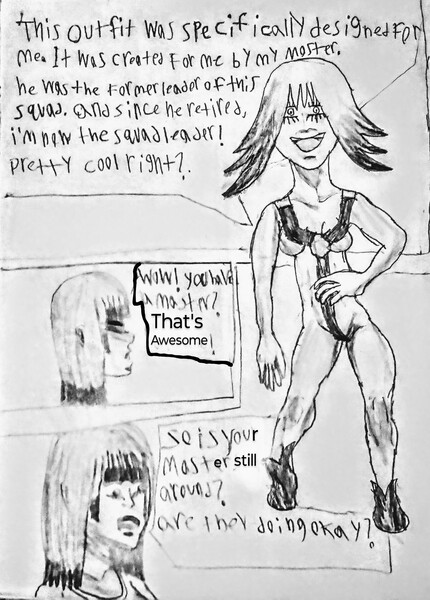 This outfit was specifically designed for
me. It was created for me by my master.
he was the former leader of this
squad. And since he retired,
i'm now the squad leader!
pretty cool right?
Wow! you have
a master?
That's
Awesome!
so is your
Master still
around?
are they doing okay?